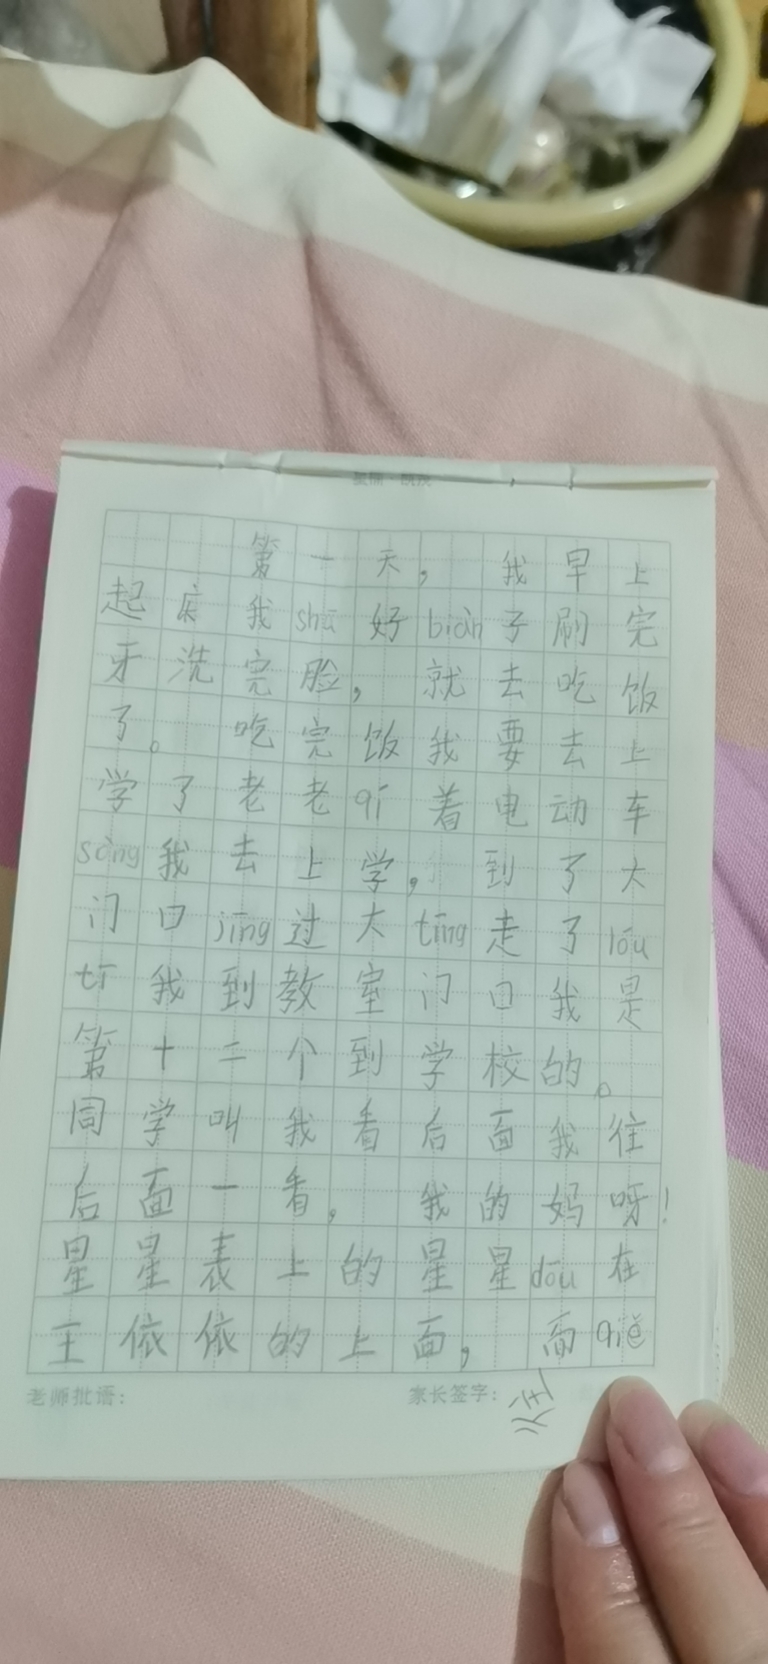 第一天，我早上
起床我shū好biàn子刷完
牙洗完脸，就去吃饭
了。吃完饭我要去上
学了老老qí着电动车
sòng我去上学，到了大
门口jīng过大tīng走了lóu
tī我到教室门口我是
第十二个到学校的。
同学叫我看后面我往
后面一看，我的妈呀！
星星表上的星星dōu在
王依依的上面，而qiě
老师批语： 家长签字：